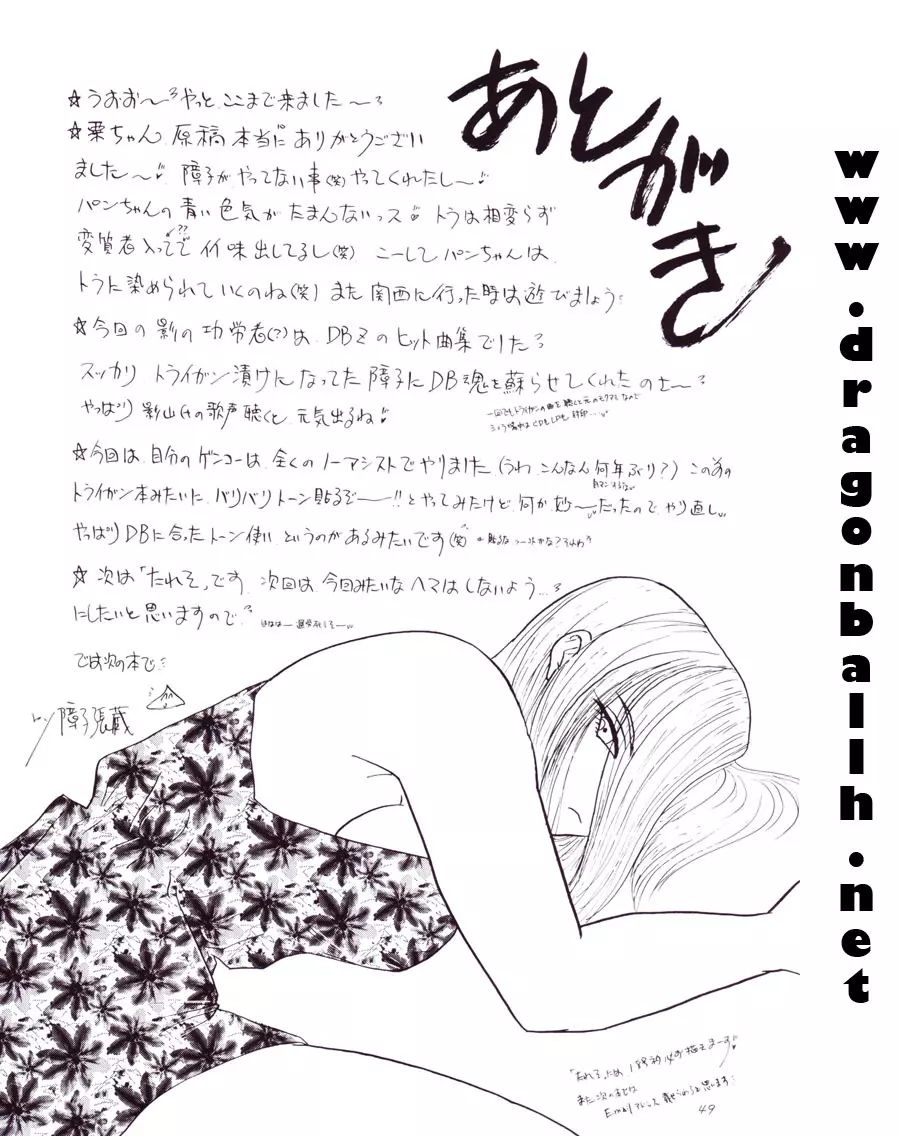 あとがき
☆うおお〜やっと、ここまで来ました〜
☆栗ちゃん、原稿本当にありがとうござい
ました〜 障子がやってない事(笑)やってくれたし〜
パンちゃんの青い色気がたまんないっス トラは相変らず
変質者入ってて
??
イイ味出してるし(笑) こーしてパンちゃんは、
トラに染められていくのね(笑) また関西に行った時は遊びましょう
☆今回の影の功労者(?)は、DBZのヒット曲集でした
スッカリ トライガン漬けになってた障子にDB魂を蘇らせてくれたのさ〜
やっぱり影山氏の歌声聴くと、元気出るね
☆今回は、自分のゲンコーは、全くのノーアシストでやりました(うわ、こんなん何年ぶり?) この前の
トライガン本みたいに、バリバリトーン貼るぞ――!!とやってみたけど、何か妙〜だったので、やり直し
やっぱりDBに合ったトーン使いというのがあるみたいです(笑)
☆次は「たれそ」です、次回は、今回みたいなヘマはしないよう…
にしたいと思いますので
では次の本で
障子張蔵
また次の本では
Emailアドレス 載せようと思います
49
www.dragonballh.net